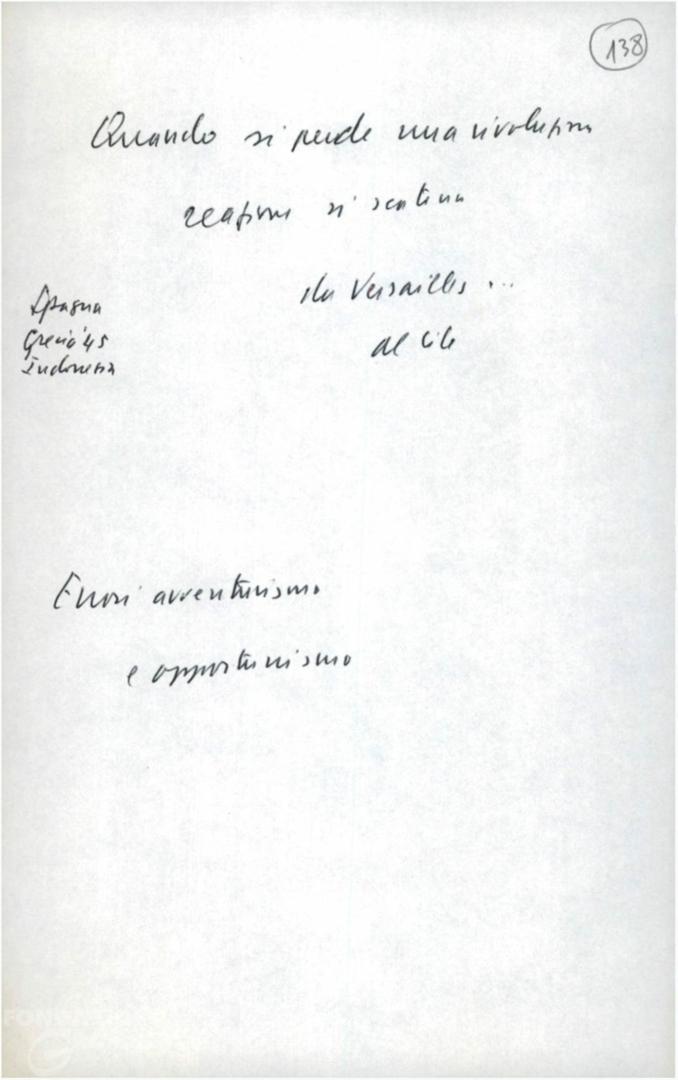 138
Quando si perde una rivoluzione
reazione si scatena
da Versailles ...
al Cile
Spagna
Grecia '45
Indonesia
Errori avventurismo
e opportunismo
FONDAZIONE